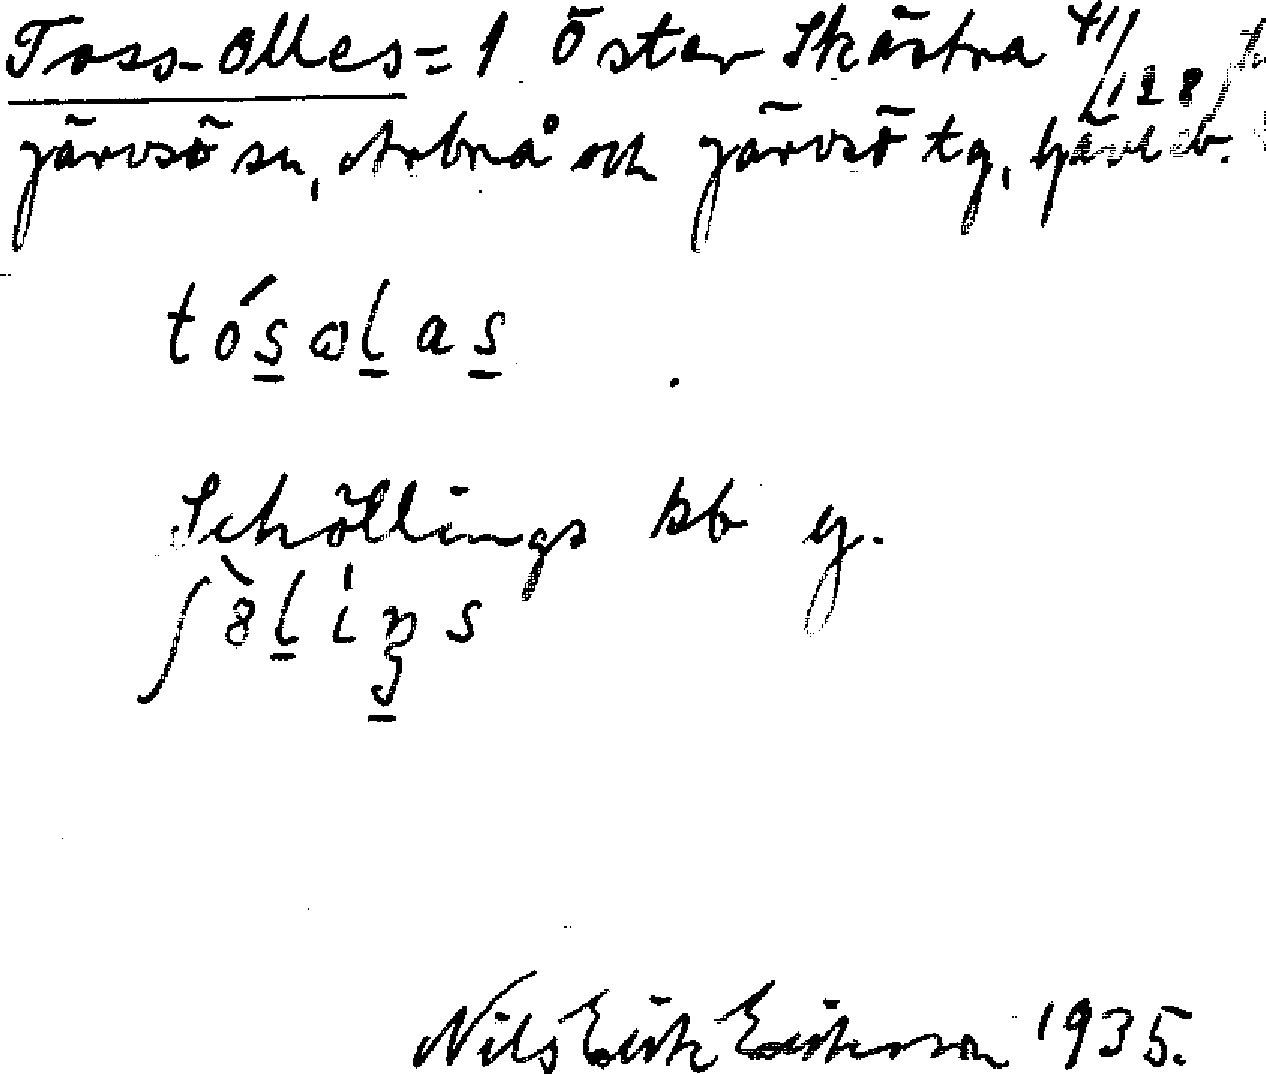 Toss-Olles = 1 Öster Skästra 41/128
Järvsö sn, Arbrå och Järvsö tg, Gävleb.
tósɷlas
Schöllings kb g.
ʃ8̀liŋs
Nils Erik Eriksson 1935.